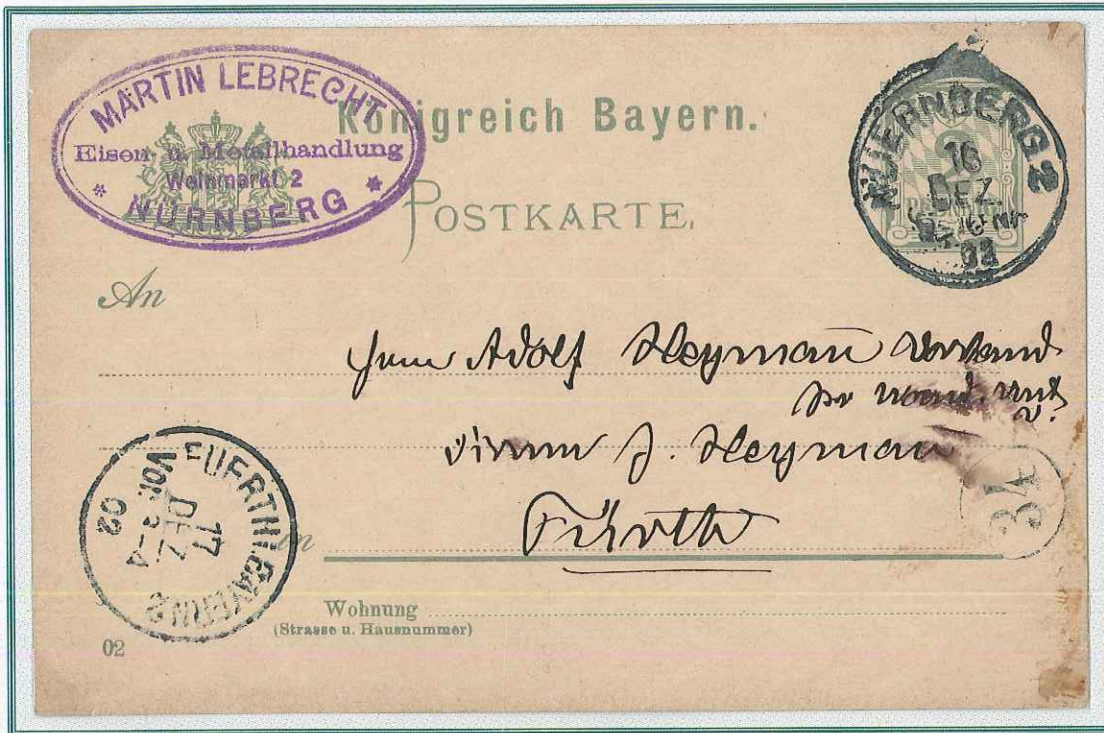 MARTIN LEBRECHT
Eisen u. Metallhandlung
Weinmarkt 2
* NÜRNBERG *
Königreich Bayern.
POSTKARTE.
NUERNBERG 2
16
DEZ.
02
An
Herrn Adolf Heymann
Firma J. Heymann
in Fürth
34
FUERTH I. BAYERN 2
17
DEZ.
VOR. 3-4
02
Wohnung
(Strasse u. Hausnummer)
02